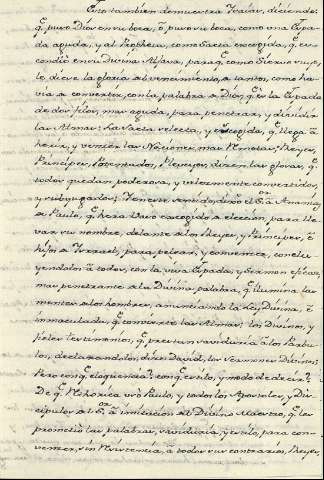 Esto tambien demuestra Isaías, diciendo:
q.e puso Dios en su boca, ò, puso su boca, como una Espa-
da aguda, y al Propheta, como Saeta escogida, q.e es-
condiò en su Divina Aljava, para q.e como Siervo suyo,
le diese la gloria al vencimiento, à tantos, como ha-
via à convertir, con la palabra à Dios, q.e es la Espada
de dos filos, mas aguda, para penetrar, y dividir
las Almas: La Saeta selecta, y escogida, q.e llega à
herir, y vencer las Naciones mas Remotas; Reyes,
Principes, Potentados, Plebeyos, dicen las glosas, q.e
todos quedan, poderosa, y velozmente convertidos,
y subyugados; Y en este sentido, dixo el S.or à Ananias
à Paulo, q.e hera Vaso escogido à eleccion, para lle-
var su nombre, delante à los Reyes, y Principes, è
hijos à Israel, para pelear, y convencer, conclu-
yendolos à todos, con la viva Espada, y Sermon eficaz,
mas penetrante à la Divina palabra, q.e ilumina las
mentes à los hombres, anunciando la Ley Divina, è
inmaculada, q.e convierte las Almas; los Divinos, y
fieles testimonios, q.e prestan sabiduria à los Parbu-
los, declarandolos, dice David, los Sermones Divinos;
Pero con q.e eloquencia? con q.e estilo, y modo de decir?
De q.e Rethorica usò Paulo, y todos los Apostoles, y Dis-
cipulos al S.or à imitacion al Divino Maestro, q.e les
prometiò las palabras, sabiduria, y estilo, para con-
vencer, sin Resistencia, à todos sus contrarios, Reyes,